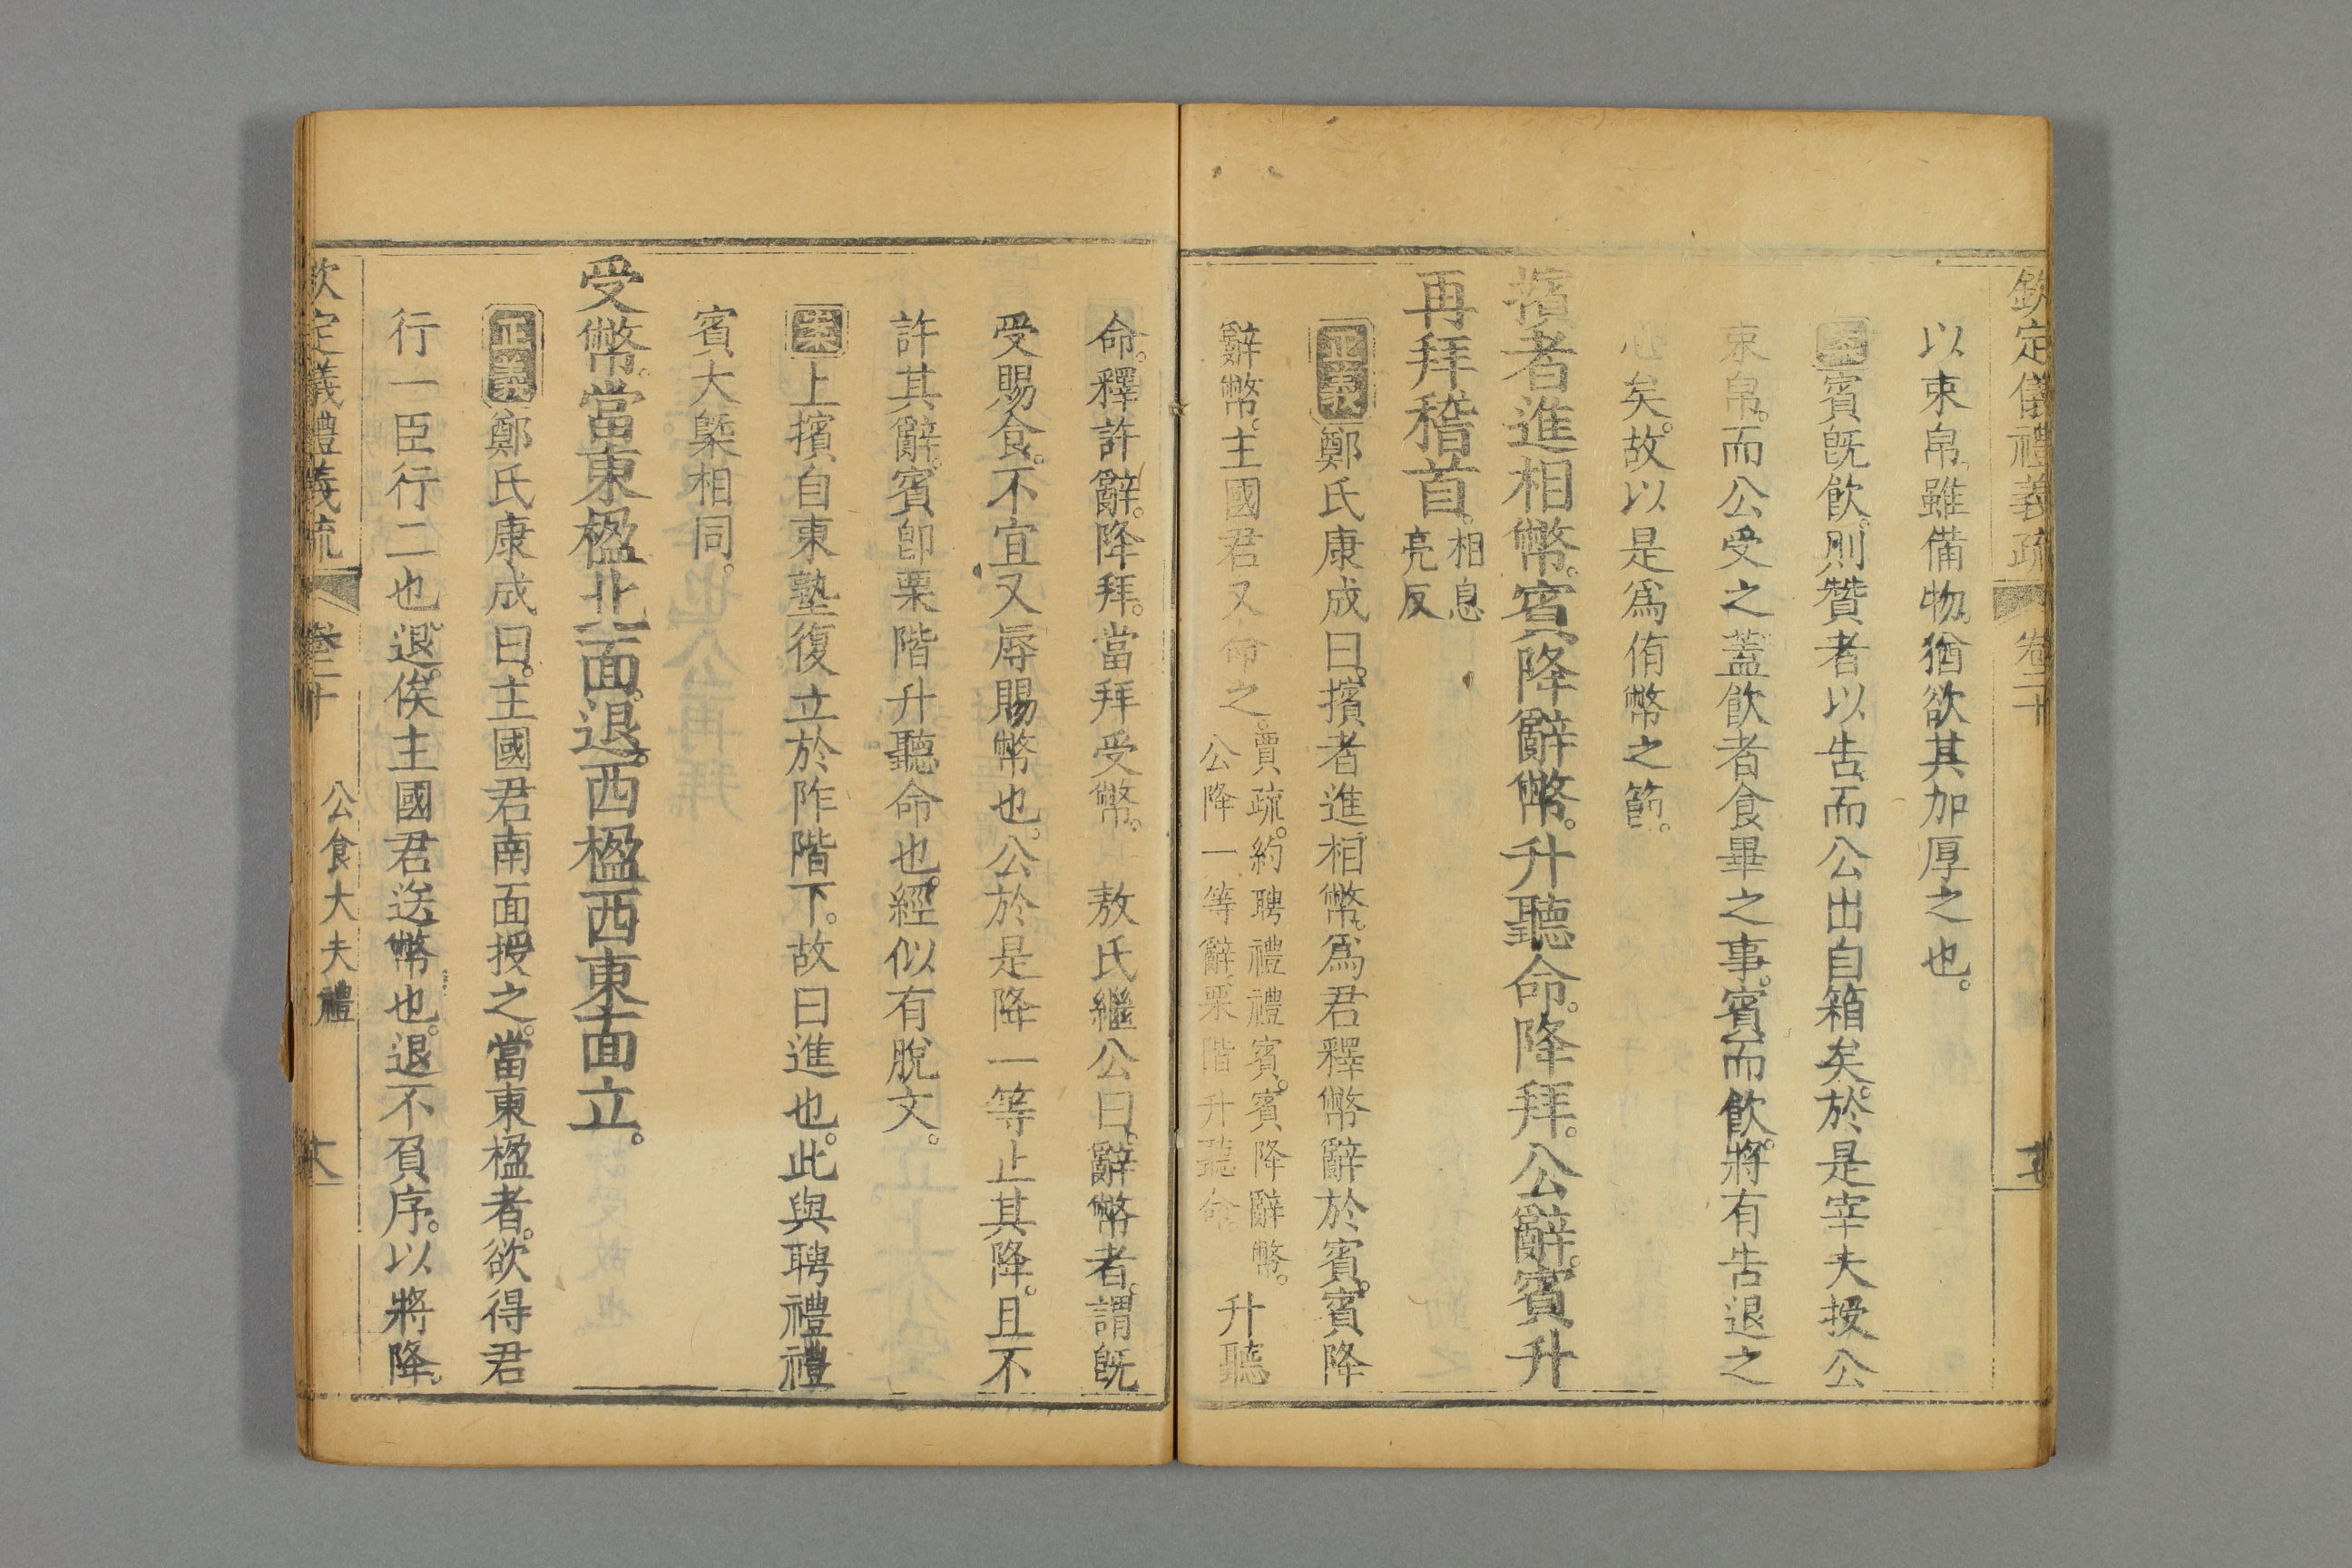 欽定儀禮義疏　卷二十
以束帛。雖備物。猶欲其加厚之也。
案賓既飲。則贊者以告。而公出自箱矣。於是宰夫授公
束帛。而公受之。蓋飲者食畢之事。賓而飲。將有告退之
心矣。故以是為侑幣之節。
擯者進相幣。賓降辭幣。升聽命。降拜。公辭。賓升
再拜稽首。相息亮反
正義鄭氏康成曰。擯者進相幣。為君釋幣辭於賓。賓降
辭幣。主國君又命之。賈疏。約聘禮禮賓。賓降辭幣。公降一等辭。栗階升聽命。升聽
命。釋許辭。降拜。當拜受幣。　敖氏繼公曰。辭幣者。謂既
受賜食。不宜又辱賜幣也。公於是降一等止其降。且不
許其辭。賓卽栗階升聽命也。經似有脫文。
案上擯自東塾復立於阼階下。故曰進也。此與聘禮禮
賓大槩相同。
受幣。當東楹北面。退。西楹西東面立。
正義鄭氏康成曰。主國君南面授之。當東楹者。欲得君
行一臣行二也。退。俟主國君送幣也。退不負序。以將降。
欽定儀禮義疏　卷二十　公食大夫禮　十八